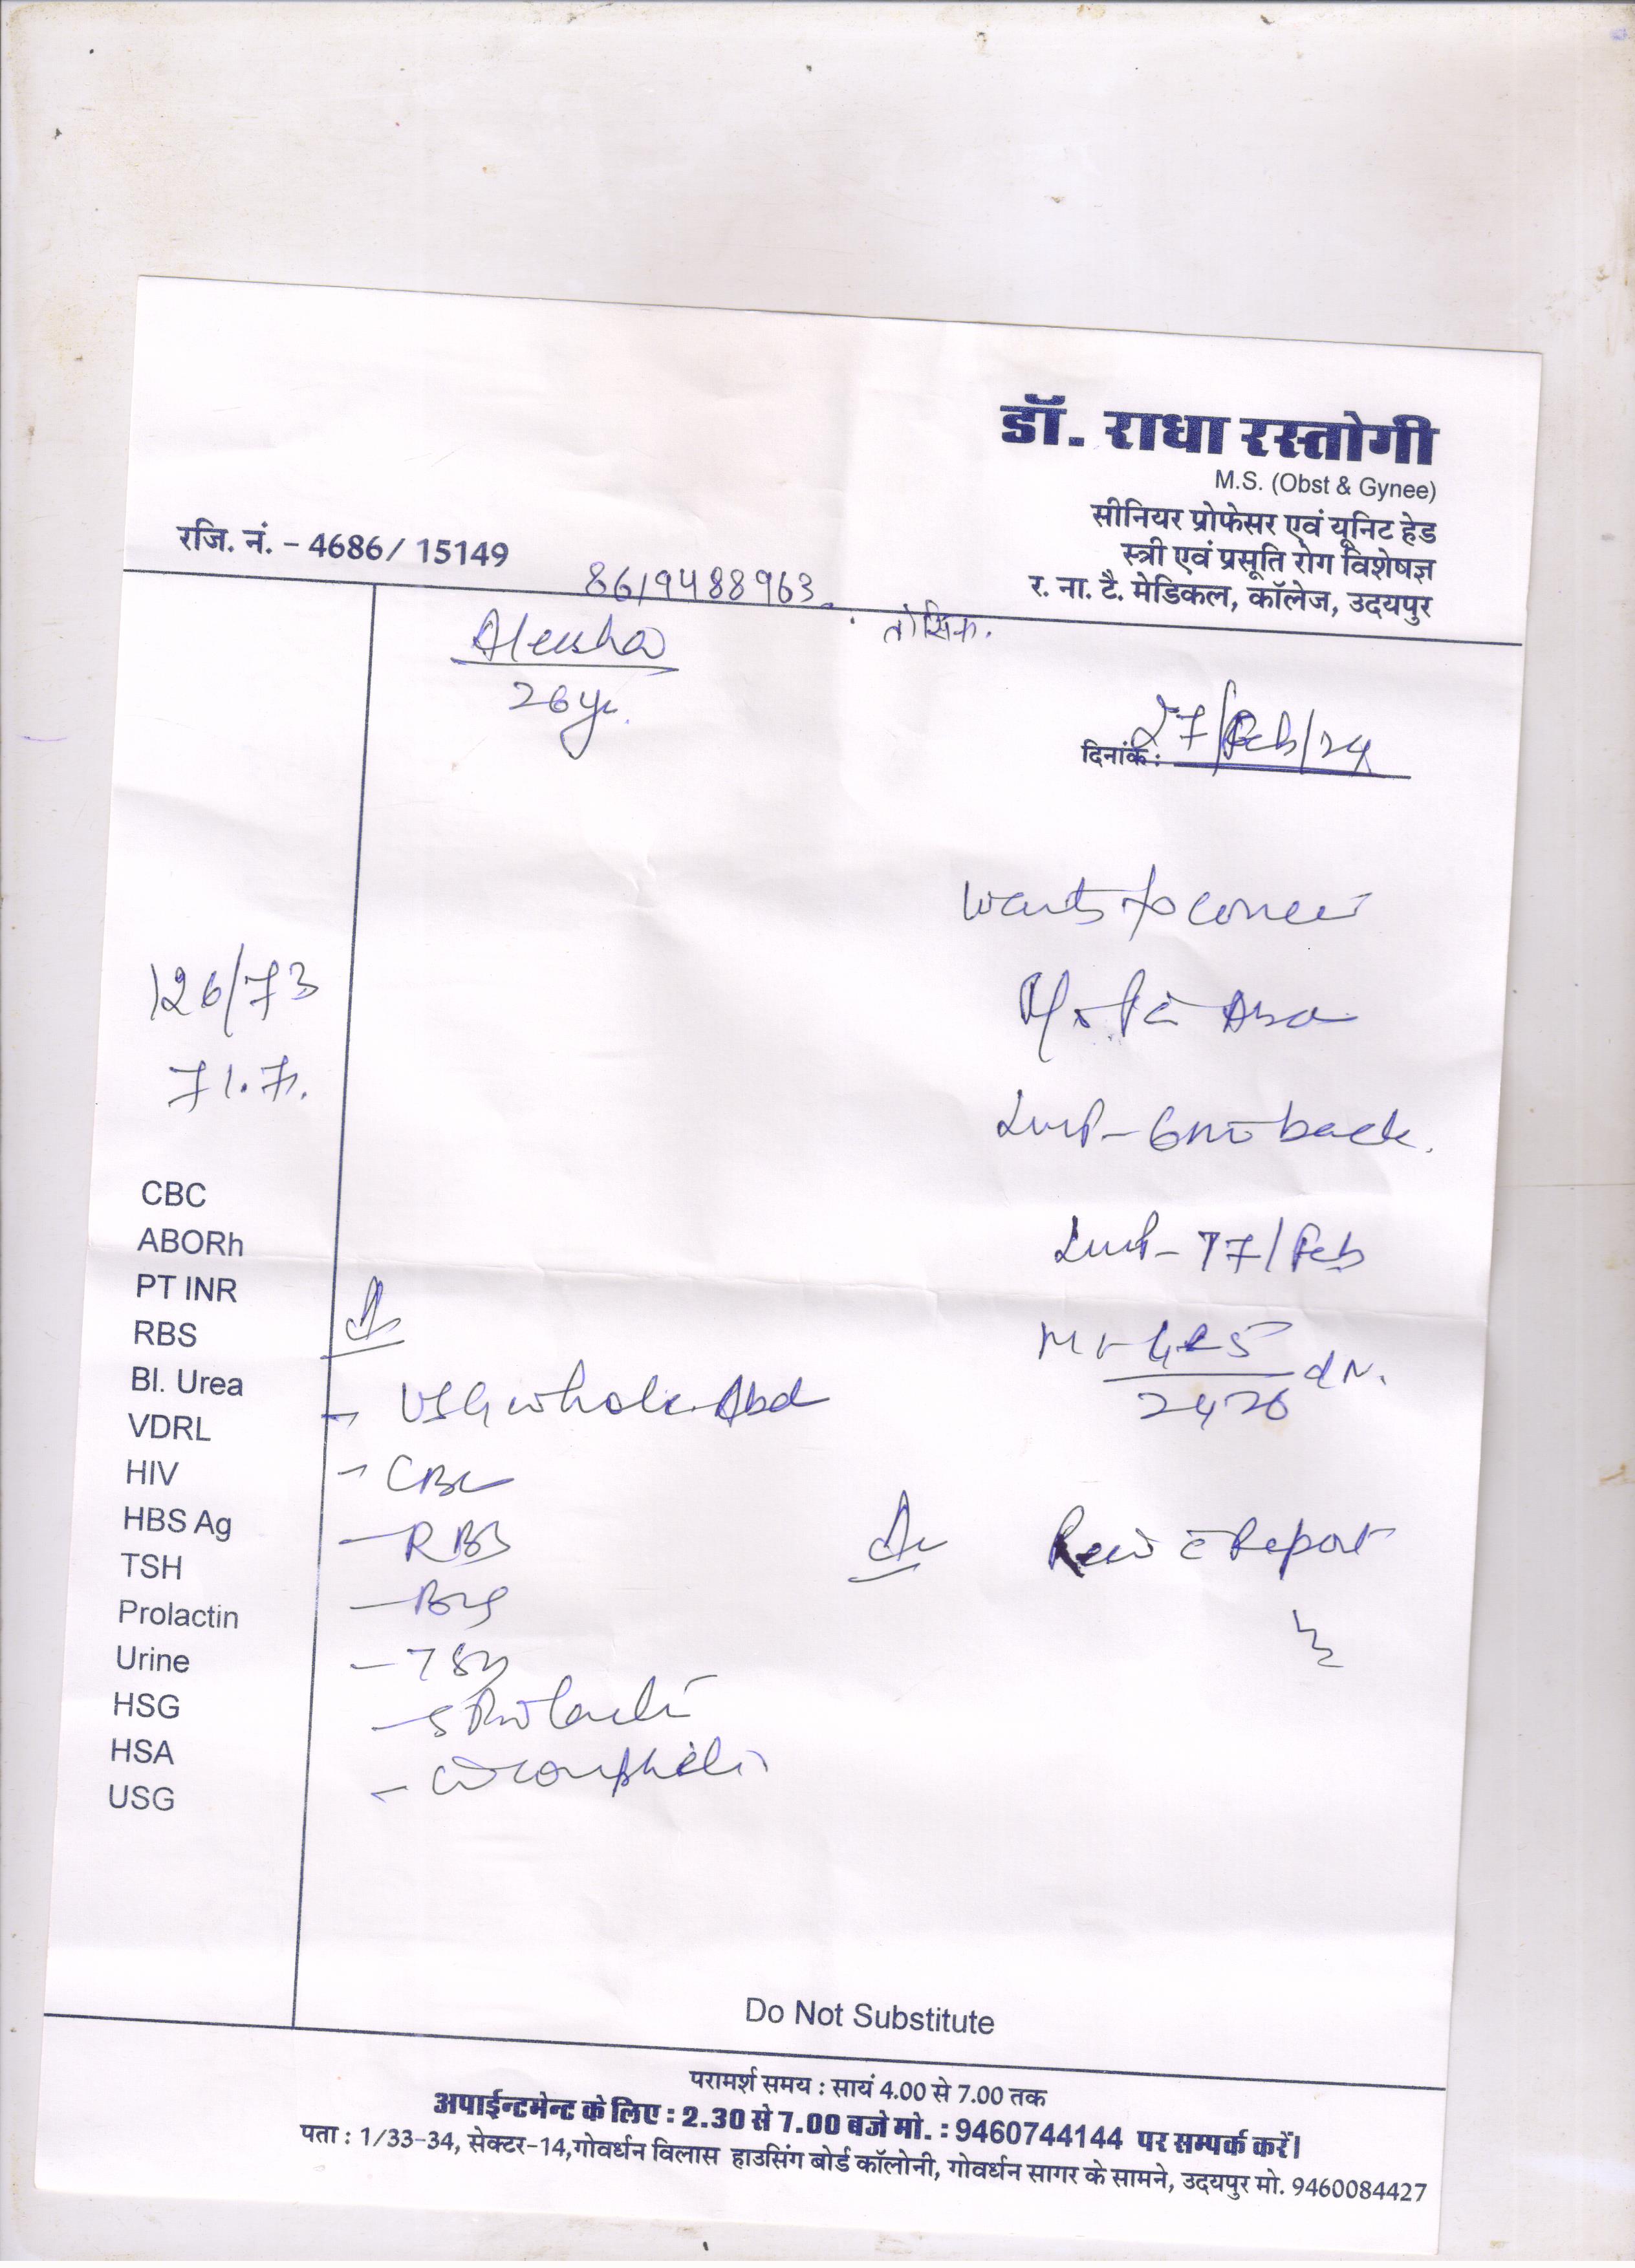 डॉ. राधा रस्तोगी
M.S. (Obst & Gynee)
सीनियर प्रोफेसर एवं यूनिट हेड
स्त्री एवं प्रसूति रोग विशेषज्ञ
र. ना. टै. मेडिकल, कॉलेज, उदयपुर
रजि. नं. - 4686/ 15149
8619488963
तोसिफ.
26 yr.
दिनांक : 27/Feb/24
wants to
126/73
71.7
Lmp - 6mo back.
Lmp - 17/Feb
CBC
ABORh
PT INR
RBS
Bl. Urea
VDRL
HIV
HBS Ag
TSH
Prolactin
Urine
HSG
HSA
USG
- USG whole Abd
- CBC
- RBS
- TSH
- S Prolactin
- Urine complete
24-26
Report
Do Not Substitute
परामर्श समय : सायं 4.00 से 7.00 तक
अपाईन्टमेन्ट के लिए : 2.30 से 7.00 बजे मो. : 9460744144 पर सम्पर्क करें।
पता : 1/33-34, सेक्टर-14,गोवर्धन विलास हाउसिंग बोर्ड कॉलोनी, गोवर्धन सागर के सामने, उदयपुर मो. 9460084427